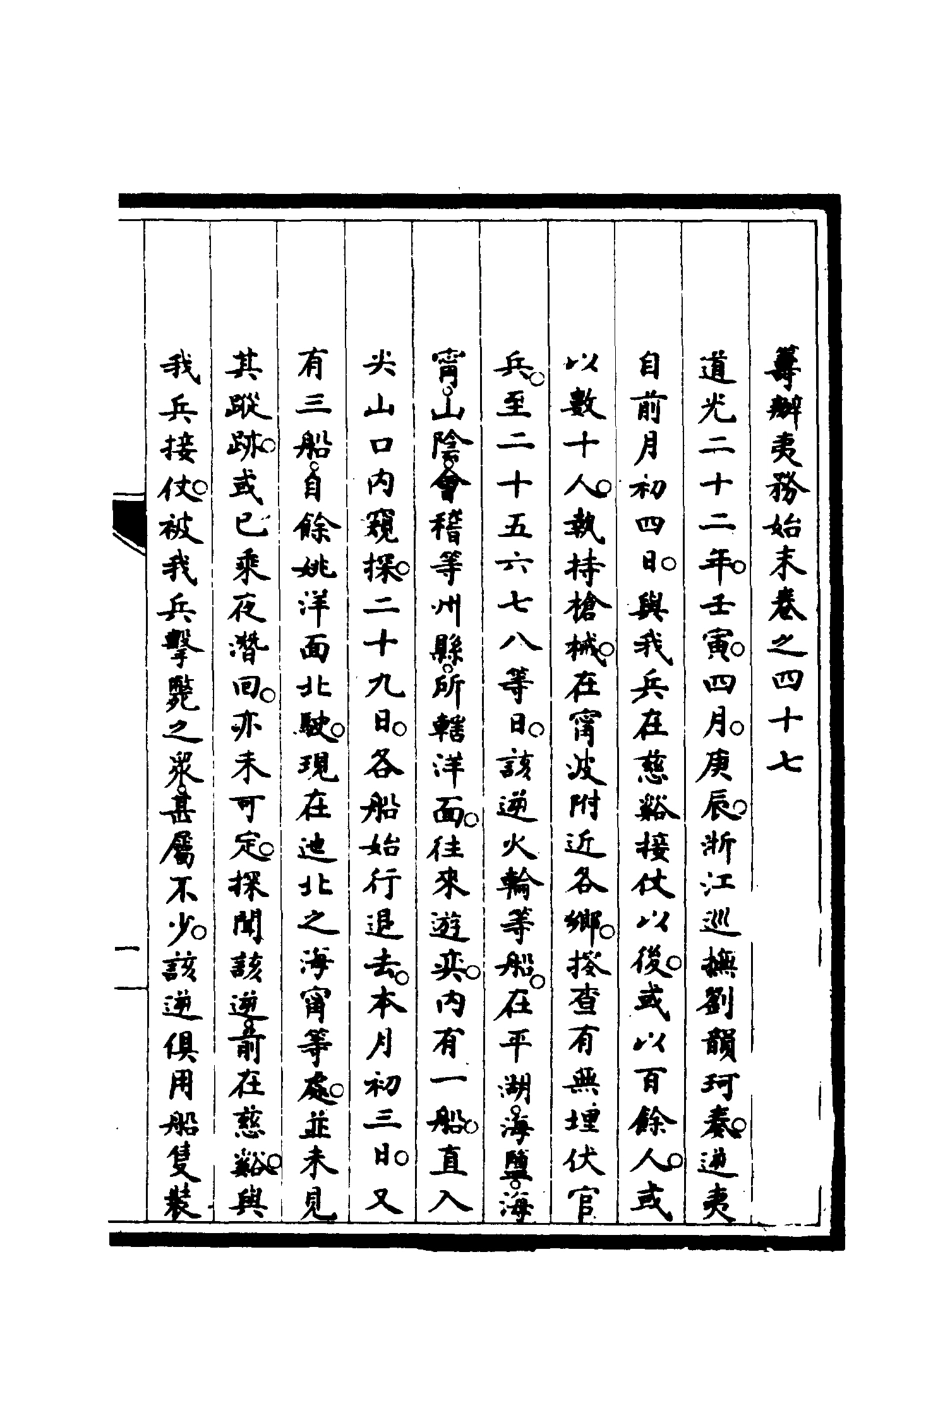 籌辦夷務始末卷之四十七
道光二十二年。壬寅。四月。庚辰。浙江巡撫劉韻珂奏。逆夷
自前月初四日。與我兵在慈谿接仗以後。或以百餘人。或
以數十人。執持槍械。在甯波附近各鄉。搜查有無埋伏官
兵。至二十五六七八等日。該逆火輪等船。在平湖。海鹽。海
甯。山陰。會稽等州縣。所轄洋面。往來遊奕。內有一船。直入
尖山口內窺探。二十九日。各船始行退去。本月初三日。又
有三船。自餘姚洋面北駛。現在迤北之海甯等處。並未見
其蹤跡。或已乘夜潛回。亦未可定。探聞該逆。前在慈谿。與
我兵接仗。被我兵擊斃之眾。甚屬不少。該逆俱用船隻裝
一